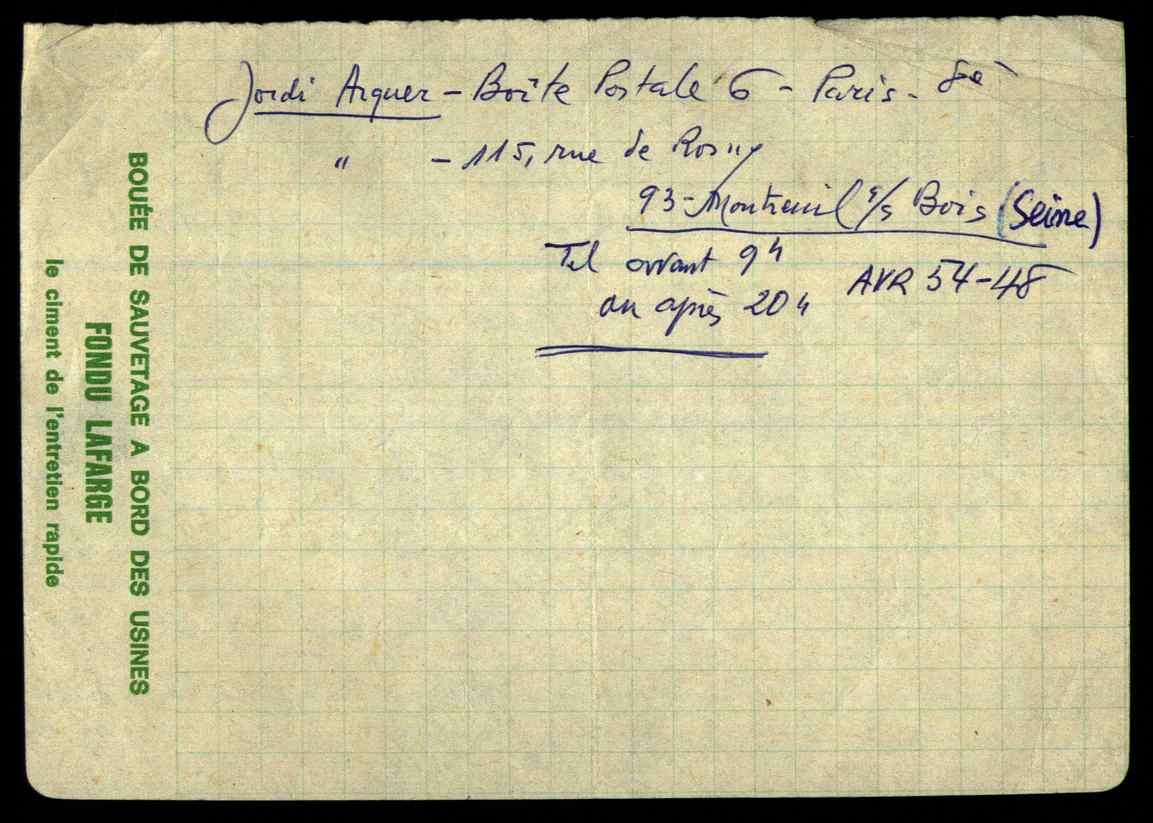 Jordi Arquer - Boîte Postale 6 - Paris - 8è
" - 115, rue de Rosny
93 - Montreuil s/s Bois (Seine)
Tel avant 9h
AVR 54-48
ou après 20h
BOUÉE DE SAUVETAGE A BORD DES USINES
FONDU LAFARGE
le ciment de l'entretien rapide